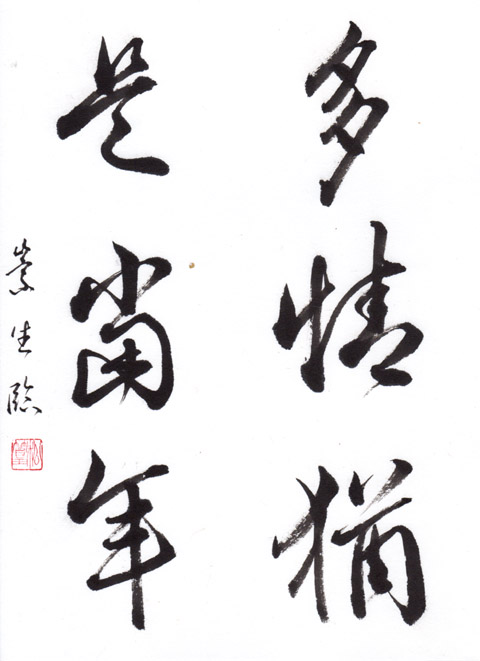 多情猶
是當年
崇生臨